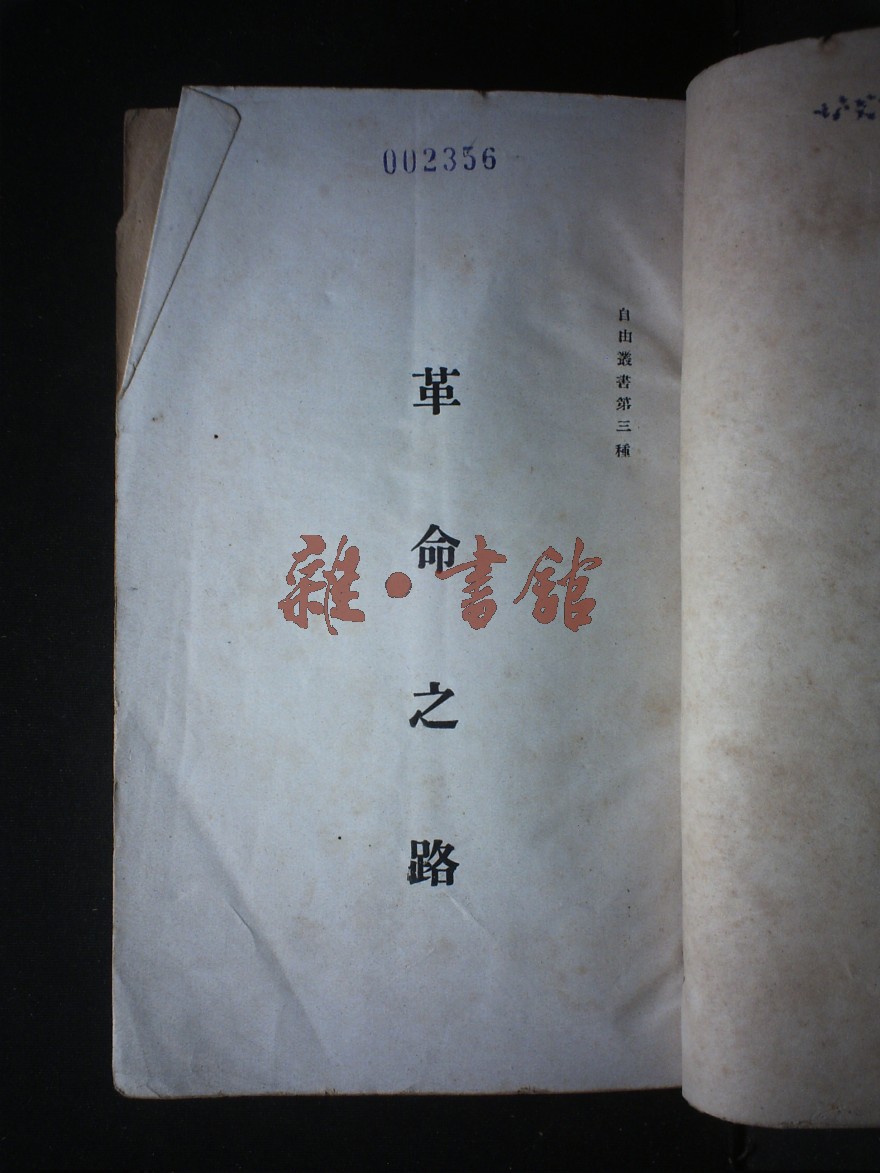 002356
自由叢書第三種
革命之路
雜·書館